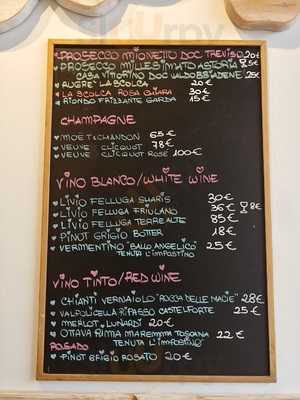 PROSECCO MIONETTO DOC TREVISO 20€
PROSECCO MILLESIMATO ASTORIA 5€
CASA VITTORINO DOC VALDOBBIADENE 25€
AUGRE' LA SCOLCA 20€
LA SCOLCA ROSA CHIARA 30€
RIONDO FRIZZANTE GARDA 15€
CHAMPAGNE
MOET & CHANDON 65€
VEUVE CLICQUOT 78€
VEUVE CLICQUOT ROSÉ 100€
VINO BLANCO/WHITE WINE
LIVIO FELLUGA SHARIS 30€
LIVIO FELLUGA FRIULANO 36€ 8€
LIVIO FELLUGA TERRE ALTE 85€
PINOT GRIGIO BOTTER 18€
VERMENTINO "BALLO ANGELICO" 25€
TENUTA L'IMPOSTINO
VINO TINTO/RED WINE
CHIANTI VERNAIOLO "ROCCA DELLE MACIE" 28€
VALPOLICELLA RIPASSO CASTELFORTE 25€
MERLOT LUNARDI 20€
OTTAVA RIMA MAREMMA TOSCANA 22€
TENUTA L'IMPOSTINO
ROSADO
PINOT GRIGIO ROSATO 20€